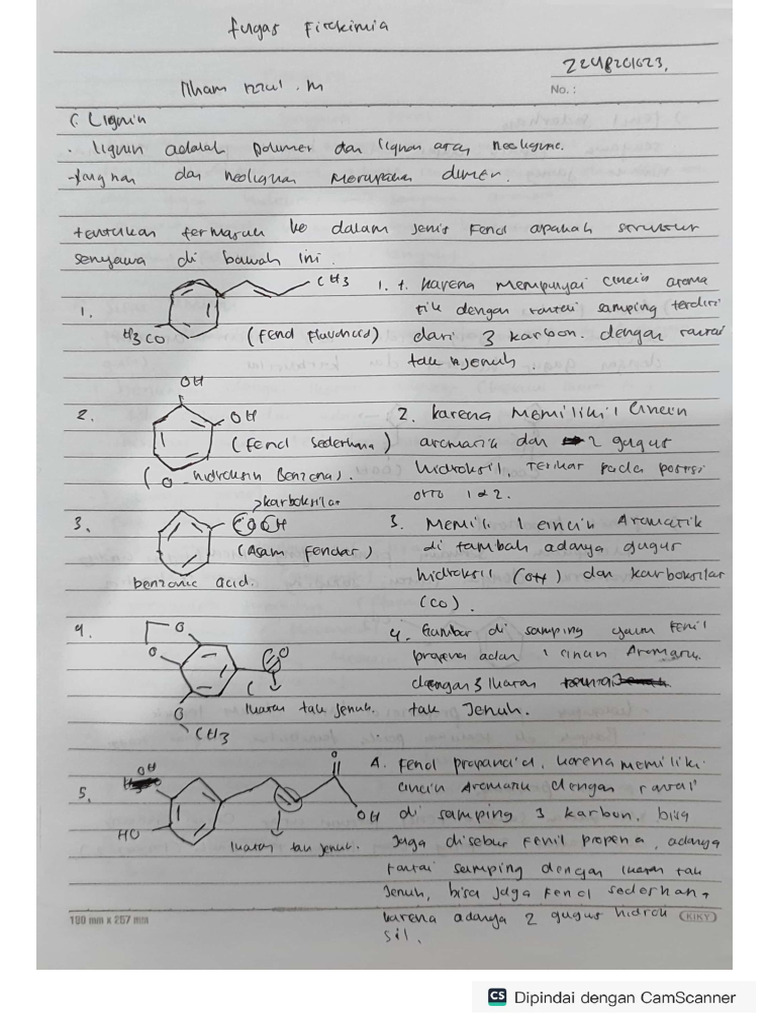 Tugas Fitokimia
2248201023.
Ilham rizul . M
No. :
C Lignin
. lignin adalah polimer dan lignan atau neolignin.
dan neolignan merupakan dimer.
tentukan termasuk ke dalam jenis Fenol apakah struktur
senyawa di bawah ini.
1.
H3CO
CH3
(Fenol Flavonoid)
1. 1. karena mempunyai cincin aroma
tik dengan rantai samping terdiri
dari 3 karbon. dengan rantai
tak jenuh.
2.
OH
OH
(Fenol sederhana)
(O-hidroksin Benzena).
2. karena memiliki 1 cincin
aromatik dan 2 gugus
hidroksil, terikat pada posisi
orto 1 & 2.
3.
karboksilat
COOH
(Asam Fenolat)
benzonic acid.
3. Memili 1 cincin Aromatik
di tambah adanya gugus
hidroksil (OH) dan karboksilat
(CO).
4.
O
O
O
O
CH3
ikatan tak jenuh.
4. Gambar di samping yaitu Fenil
propena adan 1 cincin Aromatik
dengan 3 ikatan
tak Jenuh.
5.
OH
HO
O
OH
ikatan tak jenuh.
A. Fenol propanoid, karena memiliki
cincin Aromatik dengan rantai
di samping 3 karbon. bisa
Juga disebut Fenil propena, adanya
rantai samping dengan ikatan tak
Jenuh, bisa juga Fenol sederhana,
karena adanya 2 gugus hidrok
sil.
180 mm x 257 mm
KIKY
CS Dipindai dengan CamScanner